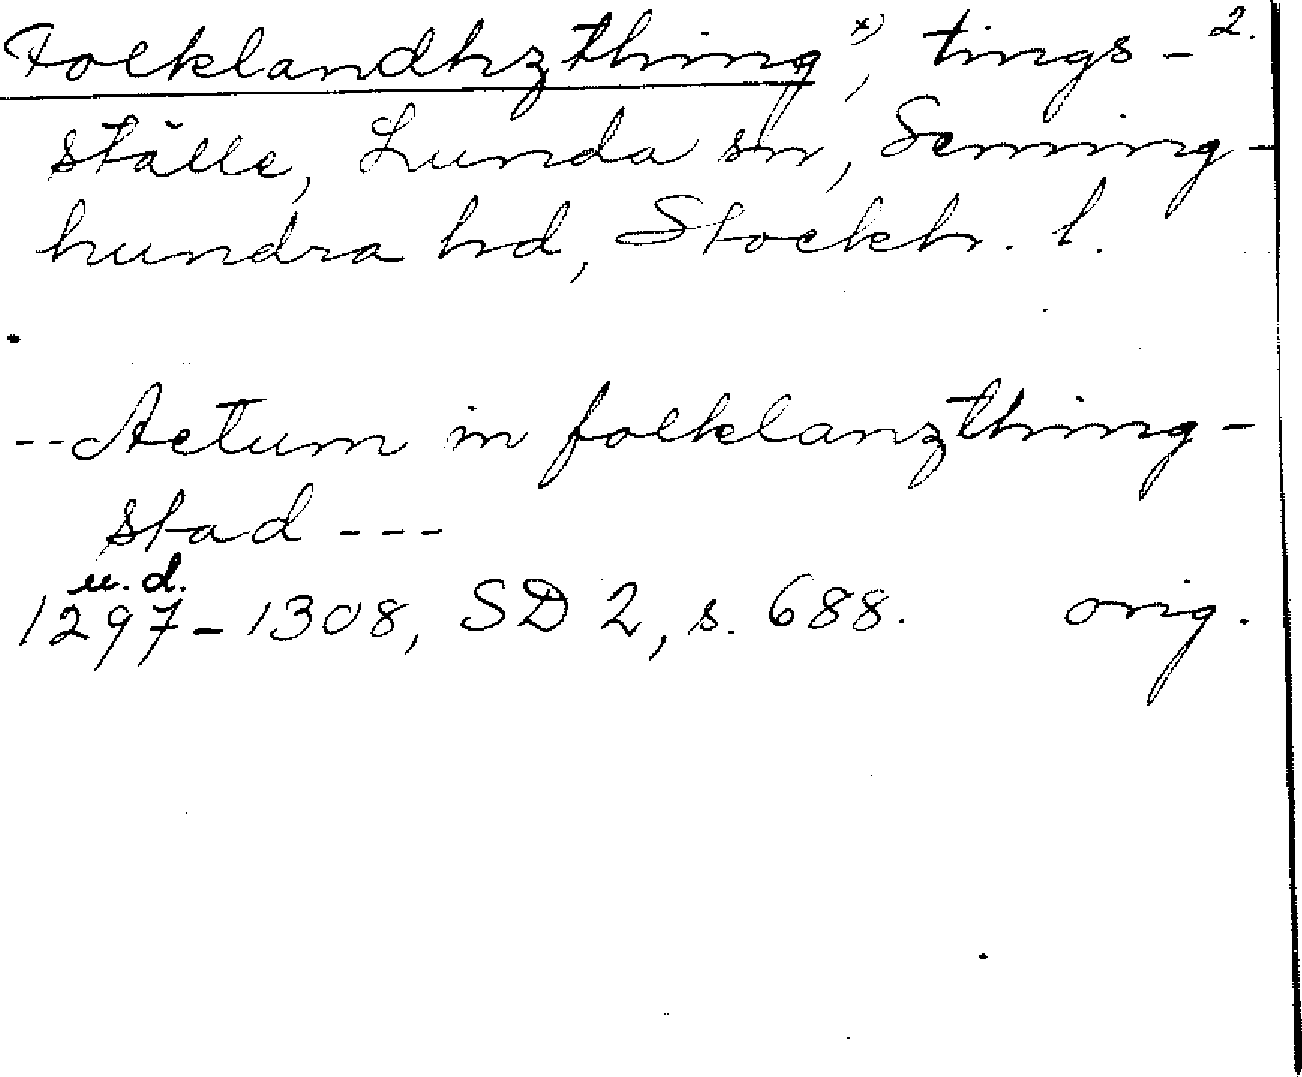 Folklandhzthing x), tings- 2.
ställe, Lunda sn, Seming-
hundra hd, Stockh. l.
--Actum in folklanzthing-
stad ---
u.d.
1297-1308, SD 2, s. 688. orig.